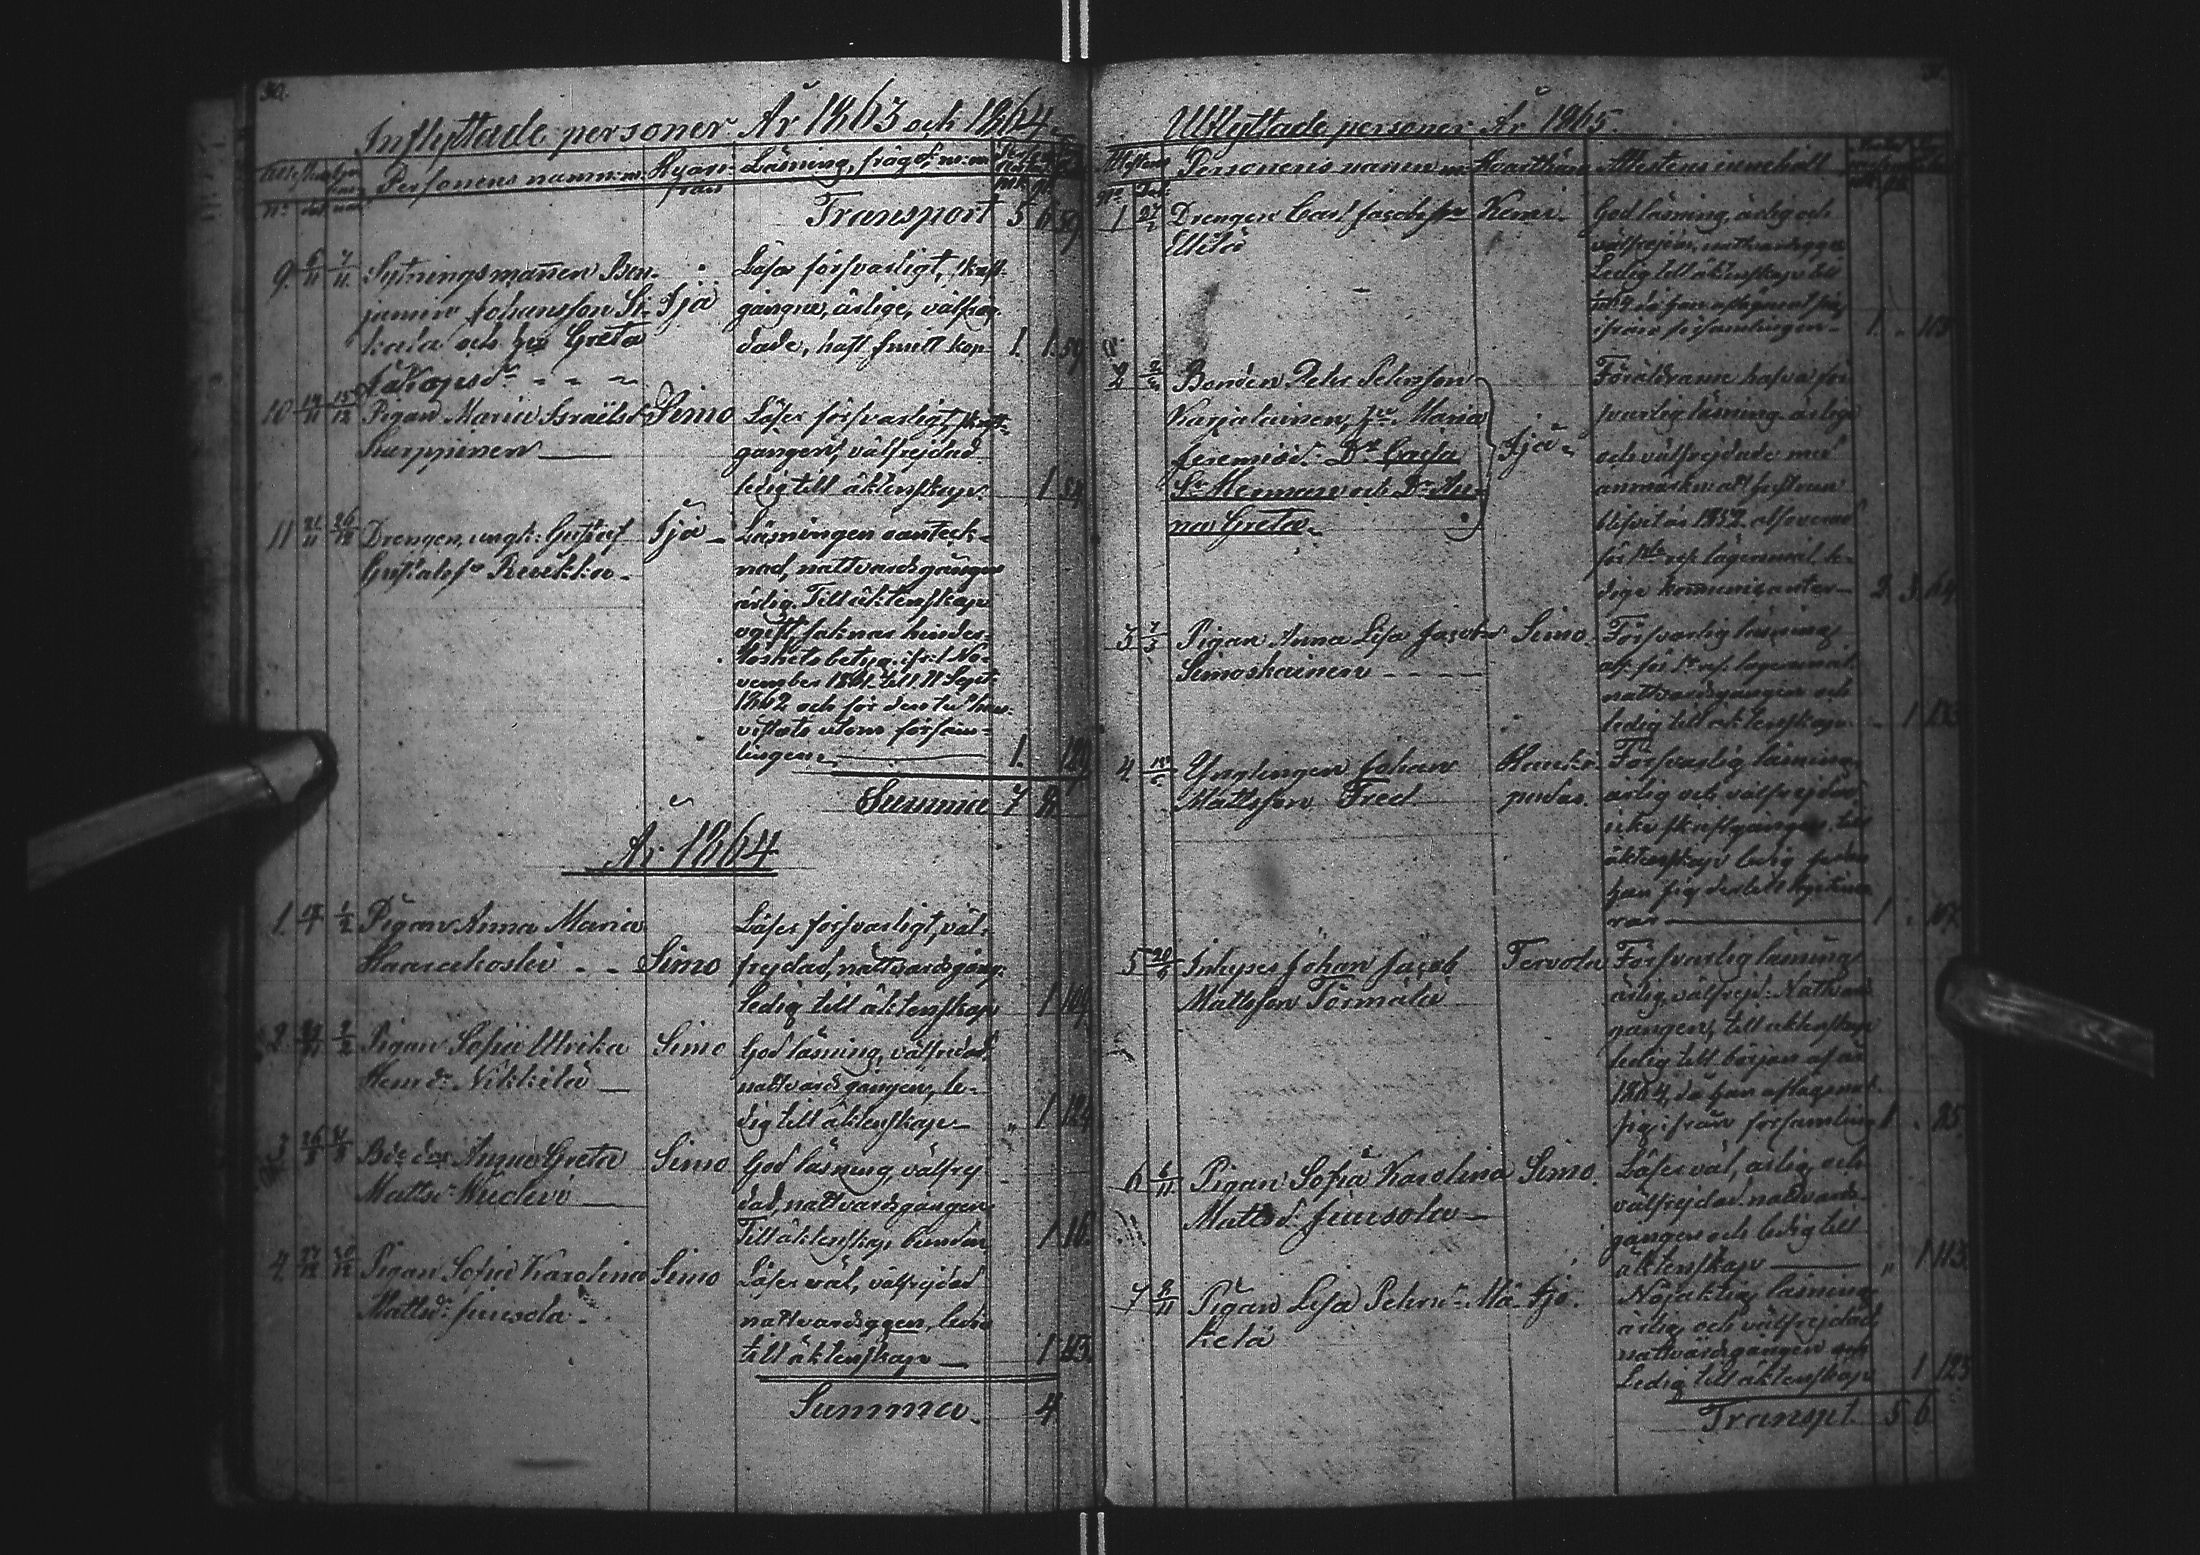 30.
Inflyttade personer År 1863 och 1864.
Personens namn Hvar-
ifrån Läsning, frägd
Transport 5 6
9. 6/11 7/11 Sytningsmannen Ben-
jamin Johansson Si- Ijo
kala och hu Greta
Jakobsdr
Läser försvarligt, skrift-
gångne, ärlige, välfrej-
dade, haft smittkop. 1. 1. 59
10 14/11 15/12 Pigan Maria Israelsd Simo
Karppinen
Läser försvarligt, skrift-
gången, välfrejdad
ledig till äktenskap. 1
11 21/11 26/12 Drengen, ungk: Gustaf Ijo
Gustafss Renkka
Läsningen oanteck-
nad, nattvardsgången
ärlig. Till äktenskap
ogift, saknar hinder-
löshetsbetyg ifr. 1 No-
vember 1861 till 11 Sept
1862 och för den tid han
vistats utom försam-
lingen 1. 129
Summa 7 8
År 1864
1. 1/2 Pigan Anna Maria
Haarakoski Simo
Läser försvarligt, väl-
frejdad, nattvardsgång.
ledig till äktenskap 1 109
2. 2/2 Pigan Sofia Ulrika Simo
Henrdr Nikkilä
God läsning, välfrejdad,
nattvardsgången, le-
dig till äktenskap " 1 124
3 Anna Greta Simo
Mattsdr
God läsning, välfrej
dad, nattvardsgången
Till äktenskap bunden 1 16
4. 27/12 30/12 Pigan Sofia Karolina Simo
Mattsdr Juusola
Läser väl, välfrejdad
nattvardsggen, ledig
till äktenskap 1 113.
Summa 4
31.
Utflyttade personer År 1865.
Personens namn Hvarthän Attestens innehåll
1 27/2 Drengen Carl Jacobsson Kemi
Ellilä
God läsning, ärlig och
välfrejdad, nattvardsggen
Ledig till äktenskap till
då han aflägsnat sig
ifrån församlingen 1 " 113
2 Bonden Petr Petersson
Karjalainen, hu Maria
Jeremiasd. Dr Greta Ijo
Sn Herman och Dr An-
na Greta.
Föräldrarne hafva för
svarlig läsning ärliga
och välfrejdade med
anmärkn att hustrun
blifvit år 1852 absolverad
för 1sta res. lägersmål le-
dige kommunicanter 2 3 64
3 7/3 Pigan Anna Lisa Jacobsd Simo
Simoskainen
Försvarlig läsning
abs. för 1 res. lägersmål,
nattvardsgången och
ledig till äktenskap 1 133
4 Ynglingen Johan Hauki-
Mattsson Fred pudas.
Försvarlig läsning,
ärlig och välfrejdad
icke skriftgången, till
äktenskap ledig
han sig
1 " 107
5 20/5 Inhyses Johan Jacob Tervola
Mattsson Törmälä
Försvarlig läsning
ärlig, välfrejd. Nattvard
gången, till äktenskap
ledig till början af år
1864, då han aflägsnat
sig ifrån församling 1 " 25
6 6/11 Pigan Sofia Karolina Simo.
Mattsd. Juusola
Läser väl, ärlig, och
välfrejdad nattvards-
gången och ledig till
äktenskap " 1 113.
7 8/11 Pigan Lisa Petersdr Mä- Ijo.
kelä
Nöjaktig läsning
ärlig och välfrejdad
nattvardsgången och
Ledig till äktenskap 1 123
Transpt. 5 6